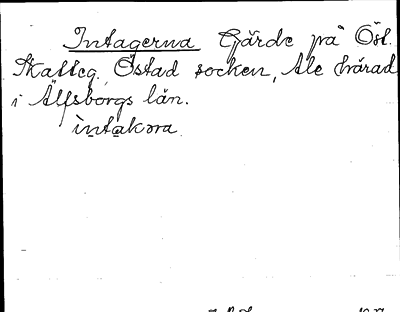 Intagerna Gärde på Öst.
Skatteg. Östad socken, Ale härad
i Älfsborgs län.
intakɷra